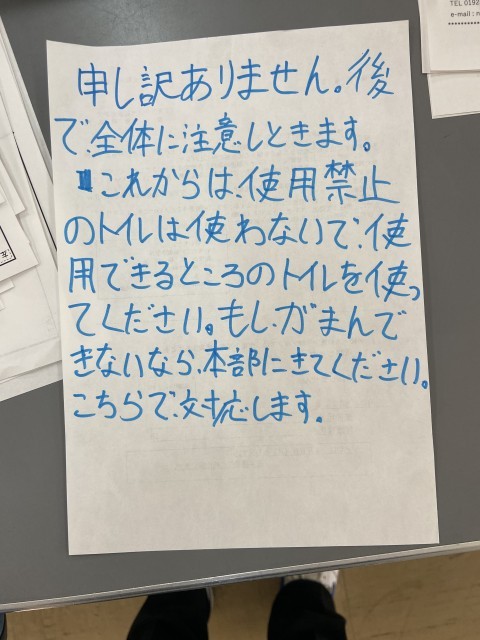 TEL 0192
e-mail : n
申し訳ありません。後
で、全体に注意しときます。
これからは、使用禁止
のトイレは使わないで、使
用できるところのトイレを使っ
てください。もし、がまんで
きないなら、本部にきてください。
こちらで、対応します。